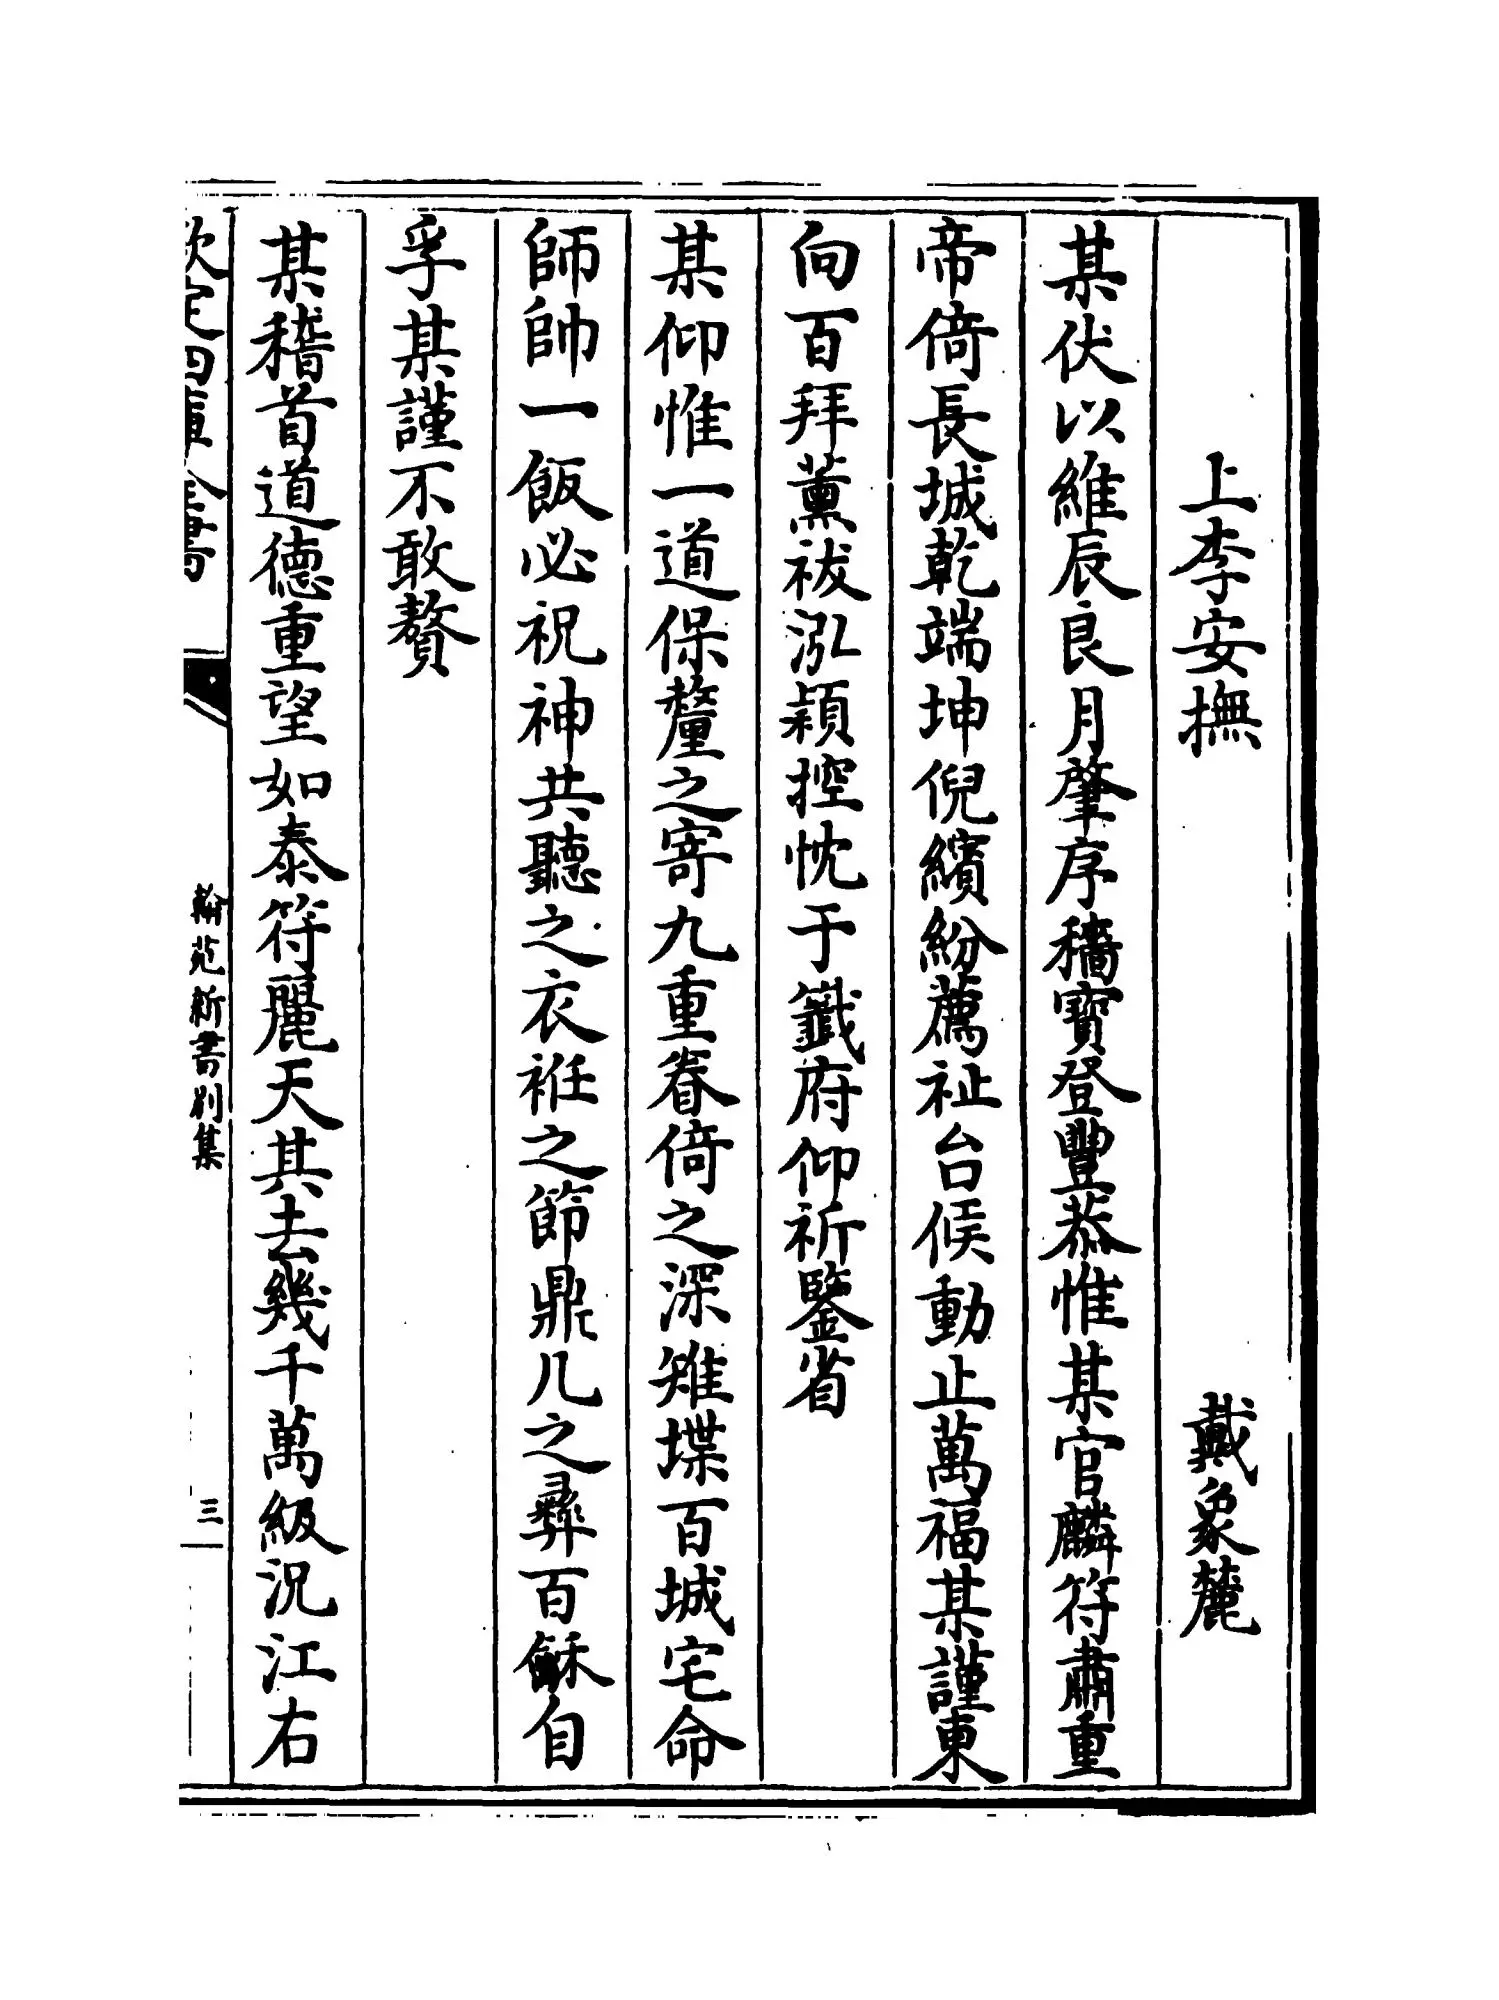 上李安撫 戴象麓
某伏以維辰良月肇序穡寶登豐恭惟某官麟符肅重
帝倚長城乾端坤倪繽紛薦祉台候動止萬福某謹東
向百拜薰祓泓穎控忱于籤府仰祈鑒省
某仰惟一道保釐之寄九重眷倚之深雉堞百城宅命
師帥一飯必祝神共聽之衣袵之節鼎几之彞百龢自
孚某謹不敢贅
某稽首道德重望如泰符麗天其去幾千萬級況江右
欽定四庫全書
翰苑新書別集
三